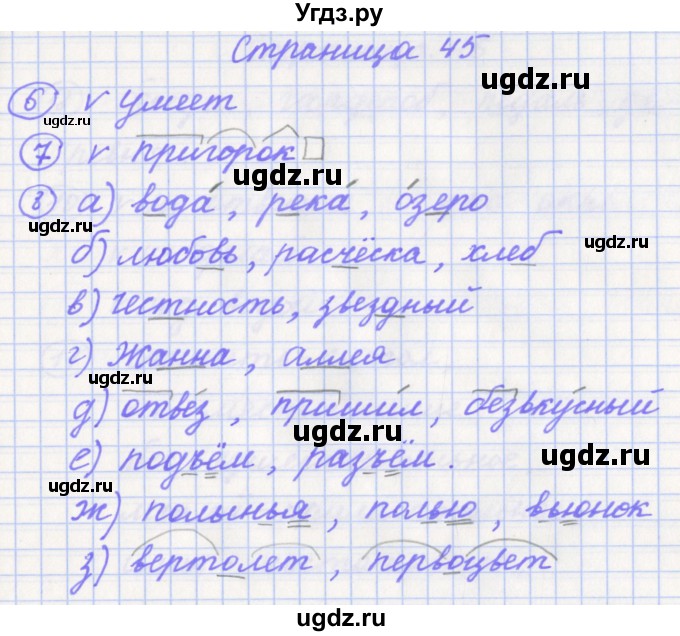 Угдз.ру
Страница 45
ugdz.ru
6 v Умеет
ugdz.ru
ugdz.ru
7 v пригорок
ugdz.ru
8 а) вода́, река́, о́зеро
ugdz.ru
б) любовь, расчёска, хлеб
ugdz.ru
в) честность, звездный
г) Жанна, аллея
ugdz.ru
д) отве́з, приши́л, безвку́сный
ugdz.ru
е) подъём, разъём.
ugdz.ru
ugdz.ru
ж) полынья, полью, вьюнок
з) вертолет, первоцвет
ugdz.ru